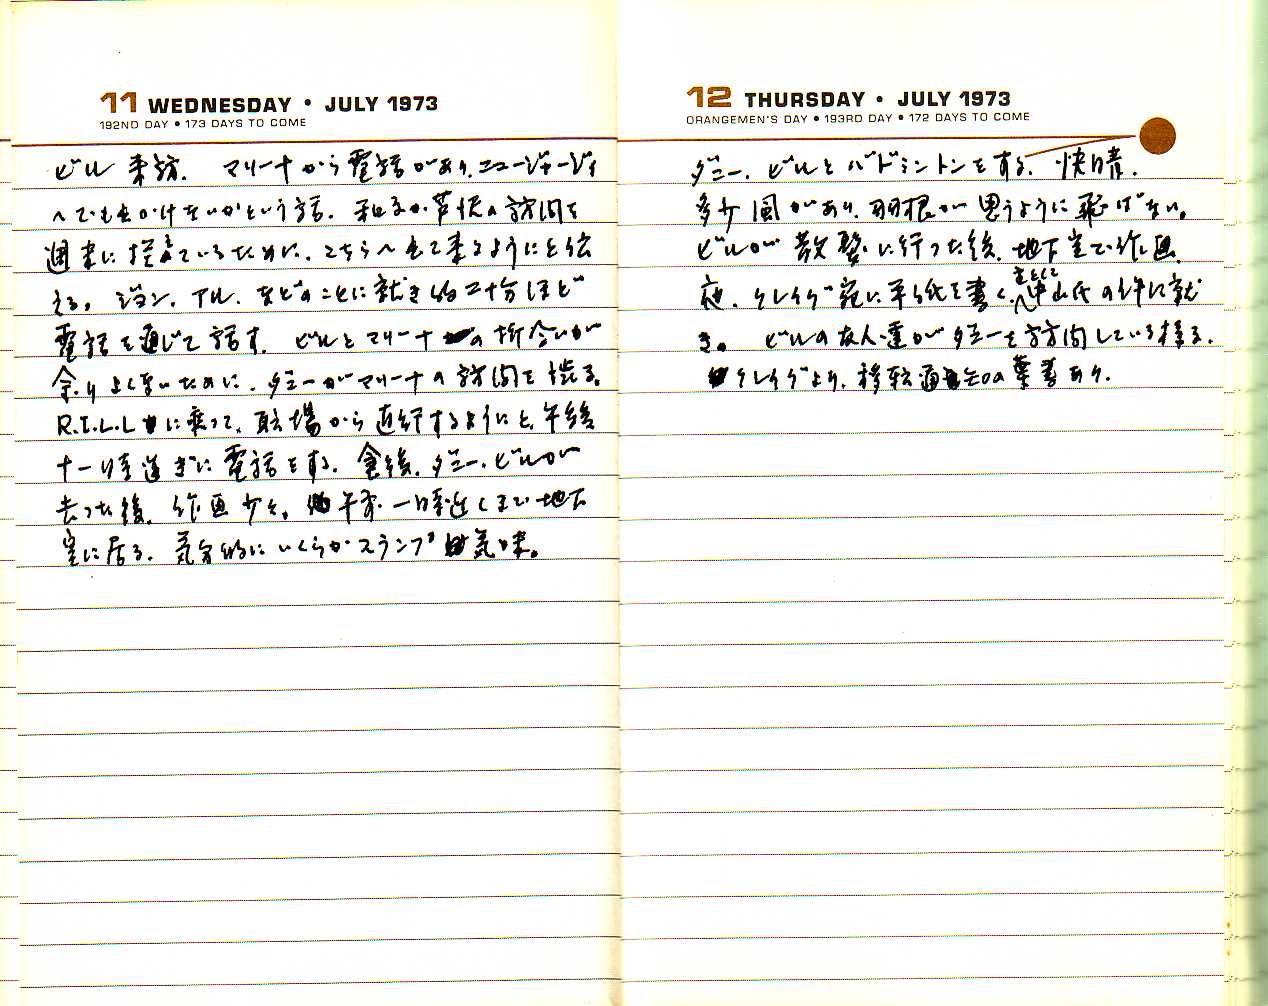 11 WEDNESDAY • JULY 1973
192ND DAY • 173 DAYS TO COME
ビル来訪、マリーナから電話があり、ニュージャージィ
へでも出かけないかという話、和子が芦沢の訪問を
週末に控えているために、こちらへ出て来るようにと伝
える。ジョン、アル、などのことに就き約二十分ほど
電話を通じて話す、ビルとマリーナの折合いが
余りよくないために、ダニーがマリーナの訪問を渋る。
R.I.L.L に乗って、駅場から直行するようにと、午後
十一時過ぎに電話をする、食後、ダニー、ビルが
去った後、作画少々。午前一時近くまで地下
室に居る、気分的にいくらかスランプ気味。
12 THURSDAY • JULY 1973
ORANGEMEN'S DAY • 193RD DAY • 172 DAYS TO COME
ダニー、ビルとバドミントンをする、快晴、
多少風があり、羽根が思うように飛ばない。
ビルが散歩に行った後、地下室で作画、
夜、クレイグ宛に手紙を書く、中山氏の件に就
き。ビルの友人達がダニーを訪問している様子、
クレイグより、移転通知の葉書あり、